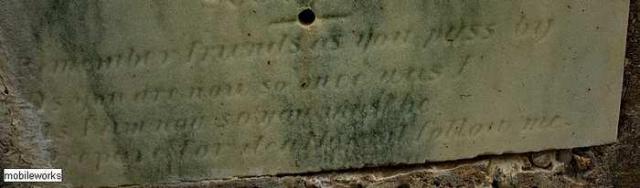 Remember friends as you pass by
As you are now so once was I
As I am now so you must be
Prepare for death and follow me.
mobileworks